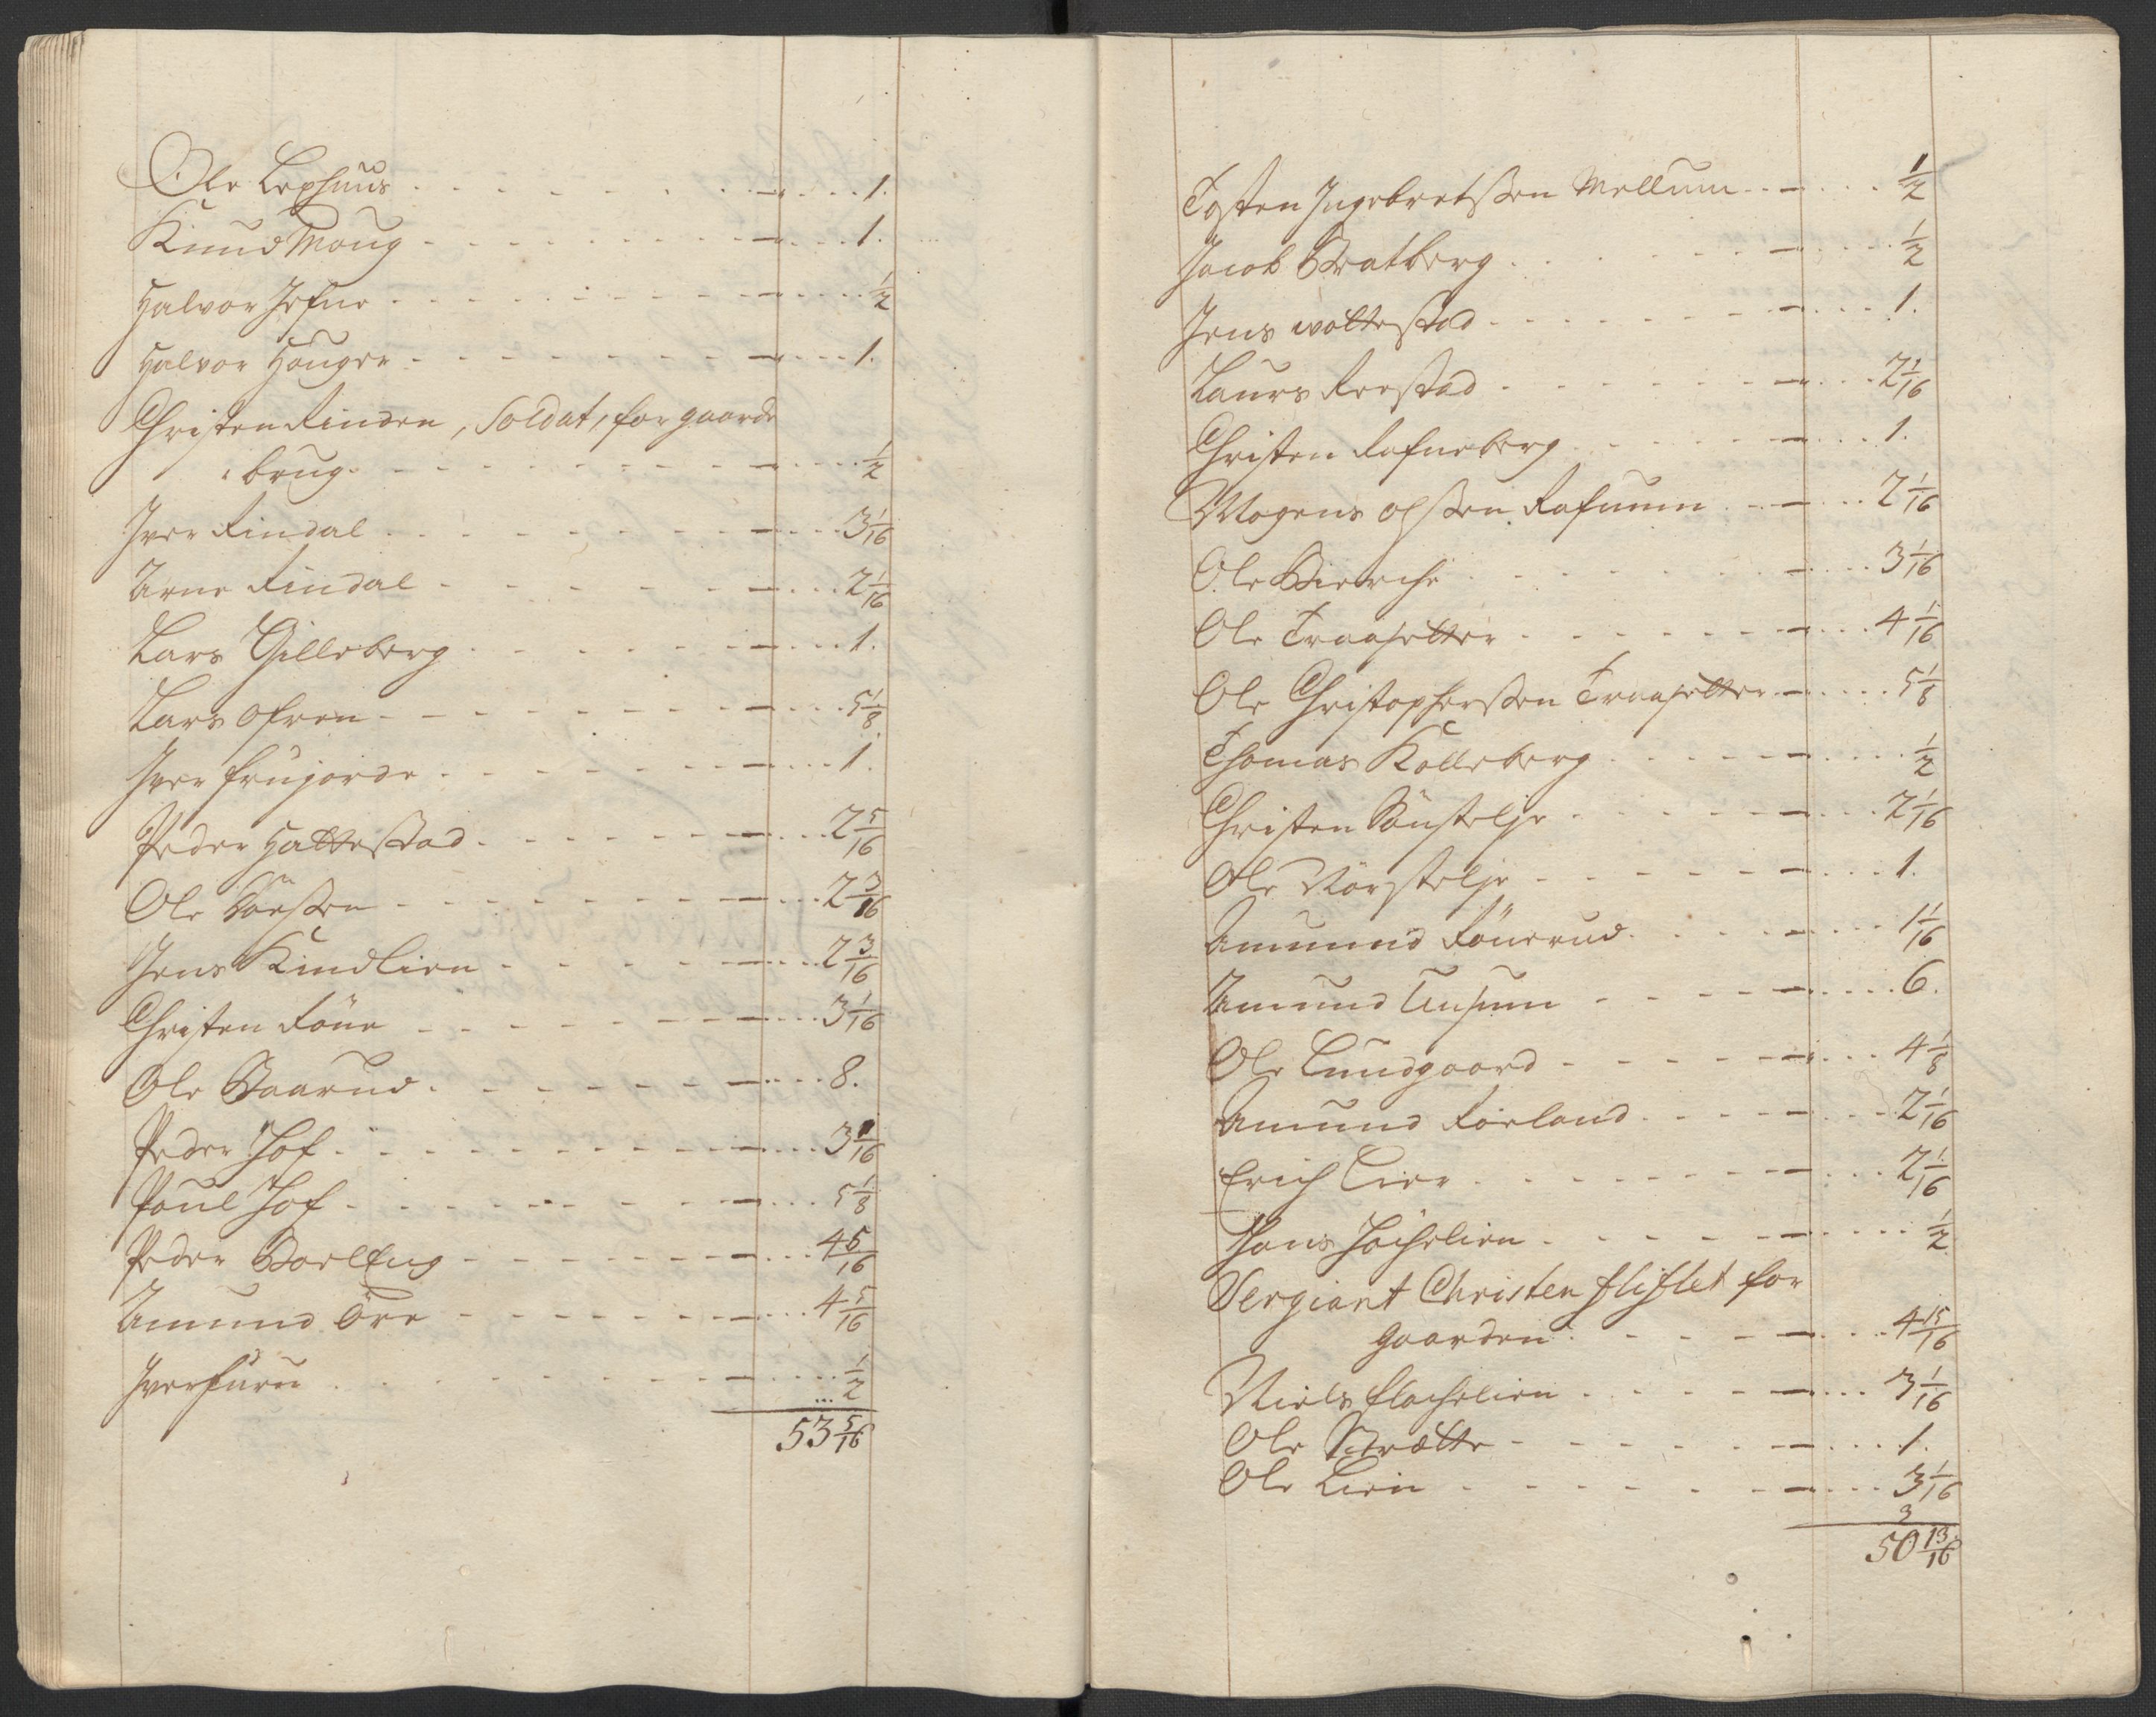 Ole Lephuus - 1.
Knud Moug - 1.
Halvor Jefne - 1/2
Halvor Houger - 1.
Christen Rinden, Soldat, for gaards
brug - 1/2
Iver Rindal - 3 1/16
Arne Rindal - 2 1/16
Lars Gilleberg - 1.
Lars Ofren - 5 1/8
Iver frugorde - 1.
Peder Hattestad - 2 5/16
Ole - 2 3/16
Jens Kindlien - 2 3/16
Christen Röne - 3 1/16
Ole Baarud - 8.
Peder Hof - 3 1/16
Poul Hof - 5 1/8
Peder Bolleug - 4 5/16
Amund Öre - 4 5/16
Iver furu - 1/2
53 5/16
Tosten Ingebretssen Mellum - 1/2
Jacob Bratberg - 1/2
Jens woltestad - 1.
Laurs Reestad - 2 1/16
Christen Rafneberg - 1.
Mogens Olssen Rafnum - 2 1/16
Ole Bierche - 3 1/16
Ole Traasetter - 4 1/16
Ole Christopherssen Traasetter - 5 1/8
Thomas Kolleberg - 1/2
Christen Sönstelje - 2 1/16
Ole Norstelje - 1.
Amund Rönerud - 1 1/16
Amund - 6.
Ole Lundgaard - 4 1/8
Amund Röeland - 2 1/16
Erich Lier - 2 1/16
Hans Höchelien - 1/2
Sergiant Christen fliflet for
Gaarden - 4 15/16
Niels flachelien - 3 1/16
Ole Brætte - 1.
Ole Lien - 3 1/16
3
50 13/16